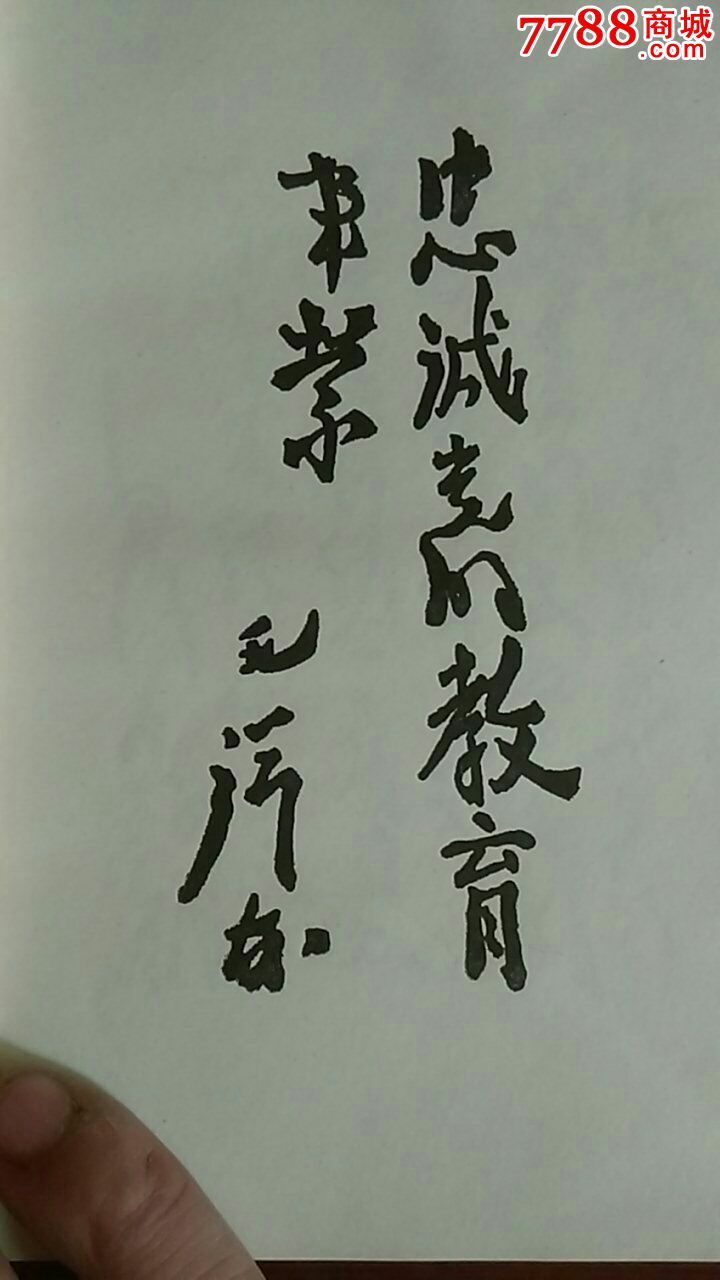 7788商城
.com
忠诚党的教育
事業
毛泽东